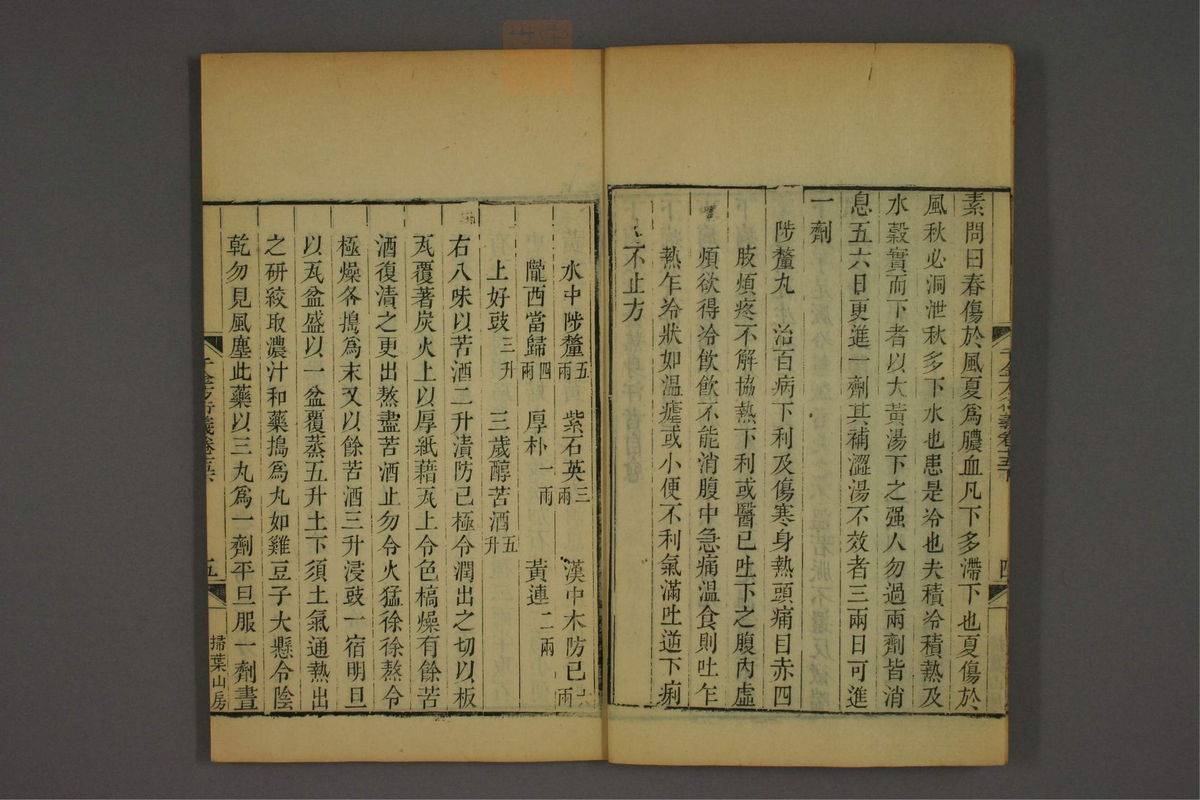 素問曰春傷於風夏爲膿血凡下多滯下也夏傷於
風秋必洞泄秋多下水也患是冷也夫積冷積熱及
水穀實而下者以大黃湯下之强人勿過兩劑皆消
息五六日更進一劑其補澀湯不效者三兩日可進
一劑
陟釐丸 治百病下利及傷寒身熱頭痛目赤四
肢煩疼不解協熱下利或醫已吐下之腹內虛
煩欲得冷飲飲不能消腹中急痛溫食則吐乍
熱乍冷狀如溫瘧或小便不利氣滿吐逆下痢
不止方
水中陟釐五兩 紫石英三兩 漢中木防己六兩
隴西當歸四兩 厚朴一兩 黃連二兩
上好豉三升 三歲醇苦酒五升
右八味以苦酒二升漬防己極令潤出之切以板
瓦覆著炭火上以厚紙藉瓦上令色槁燥有餘苦
酒復漬之更出熬盡苦酒止勿令火猛徐徐熬令
極燥各搗爲末又以餘苦酒三升浸豉一宿明旦
以瓦盆盛以一盆覆蒸五升土下須土氣通熱出
之研絞取濃汁和藥搗爲丸如雞豆子大懸令陰
乾勿見風塵此藥以三丸爲一劑平旦服一劑晝
五
掃葉山房